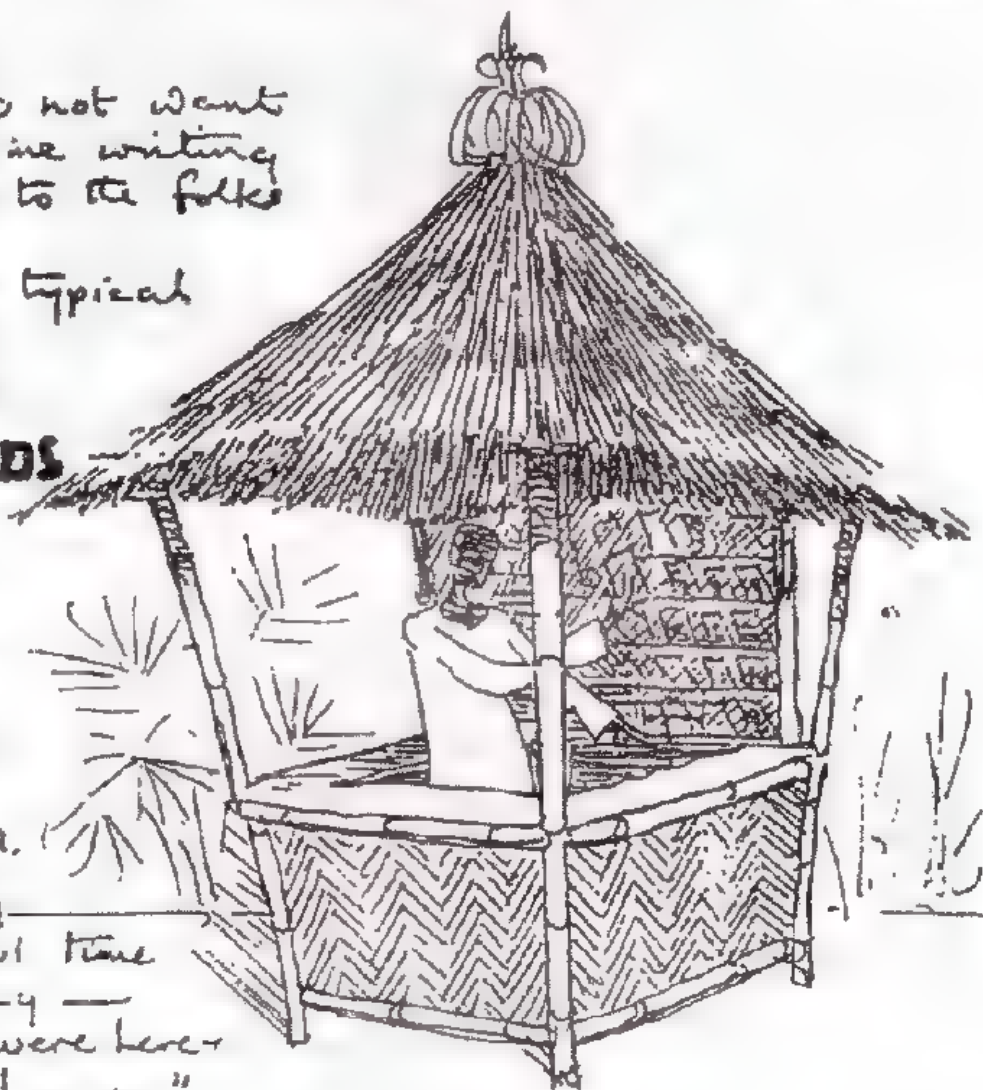 not want
writing
to the folks
typical
DS —
time
were here
"